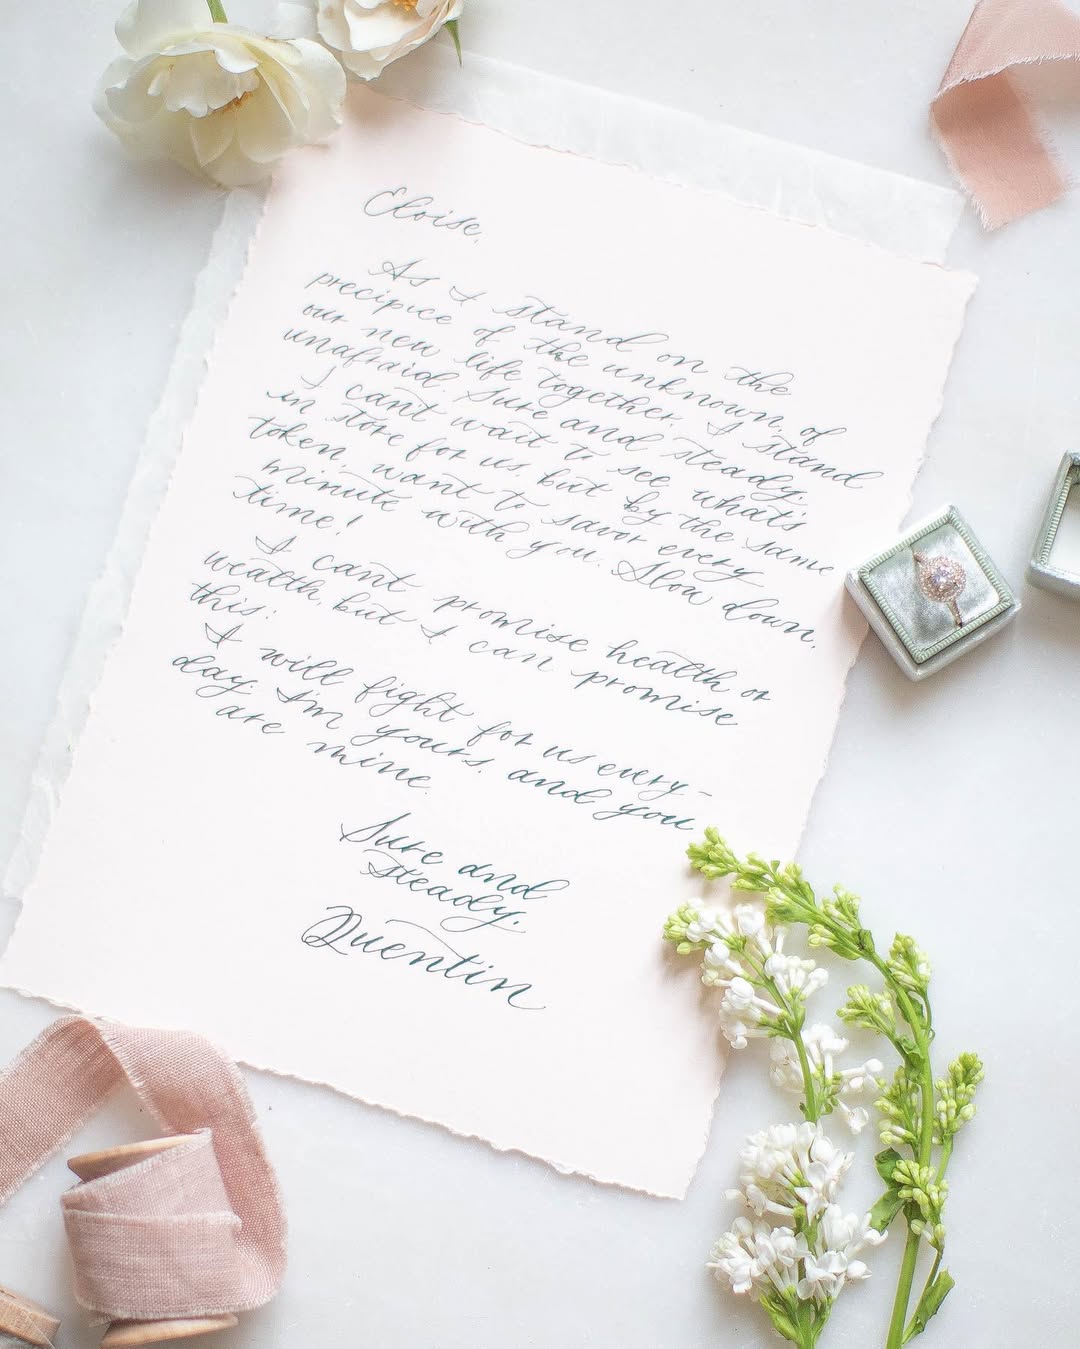 Eloise,
As I stand on the
precipice of the unknown, of
our new life together, I stand
unafraid. Sure and steady.
I can't wait to see what's
in store for us but by the same
token, want to savor every
minute with you. Slow down,
time!
I can't promise health or
wealth, but I can promise
this:
I will fight for us every-
day. I'm yours, and you
are mine.
Sure and
steady,
Quentin